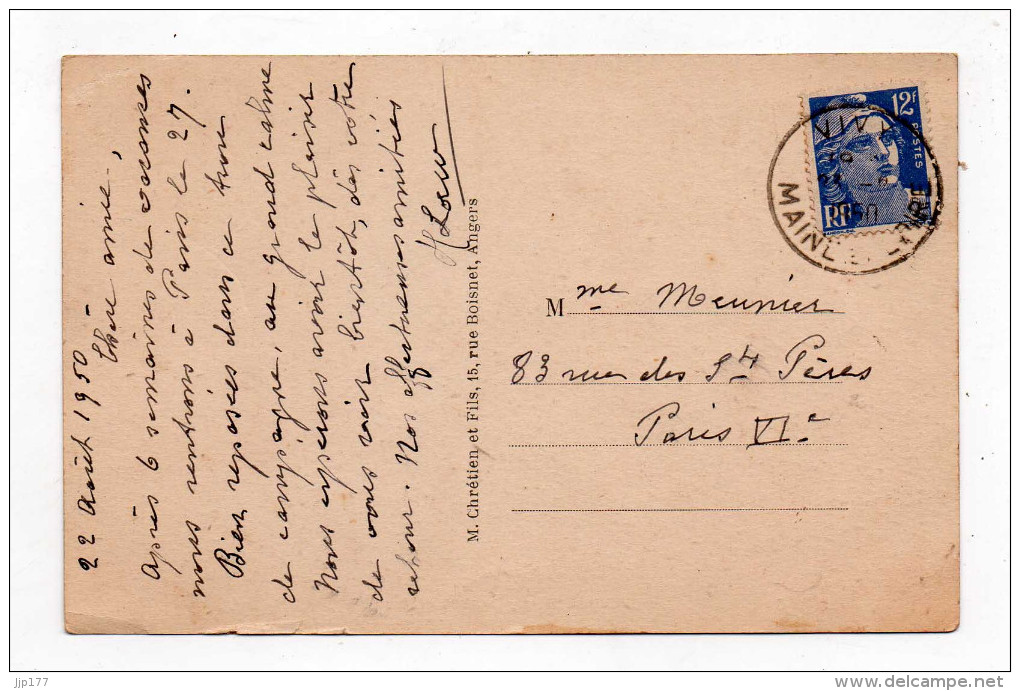 22 Août 1950
Chère amie,
Après 6 semaines de vacances
nous rentrons à Paris le 27.
Bien reposés dans ce trou
de campagne, au grand calme
Nous espérons avoir le plaisir
de vous voir bientôt, dès votre
retour. Nos affectueuses amitiés
M. Chrétien et Fils, 15, rue Boisnet, Angers
12F
POSTES
RF
VIVY
50
MAINE ET LOIRE
Mme Meunier
83 rue des Sts Pères
Paris VIe
jjp177
www.delcampe.net